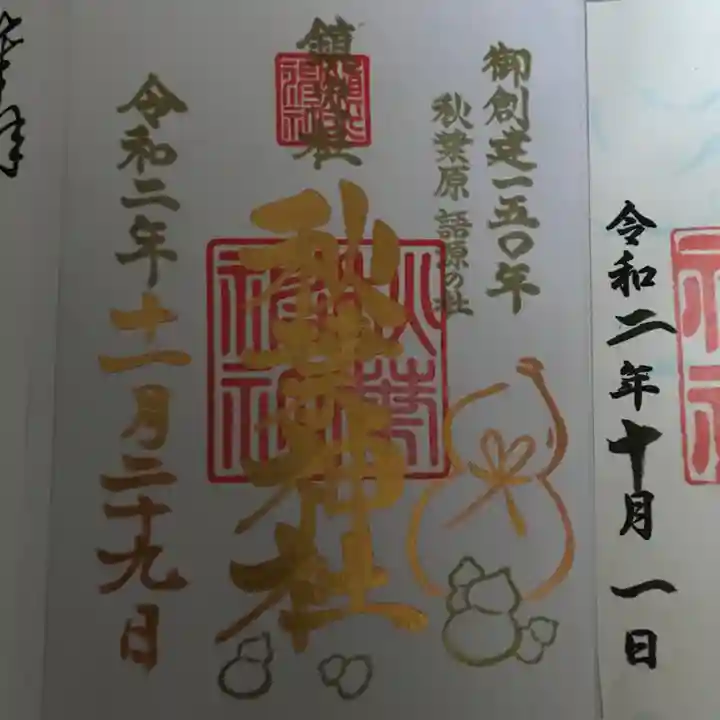 令和二年十月一日
御創建一五〇年
秋葉原 語源の社
鎮火社
秋葉神社
令和二年十一月二十九日